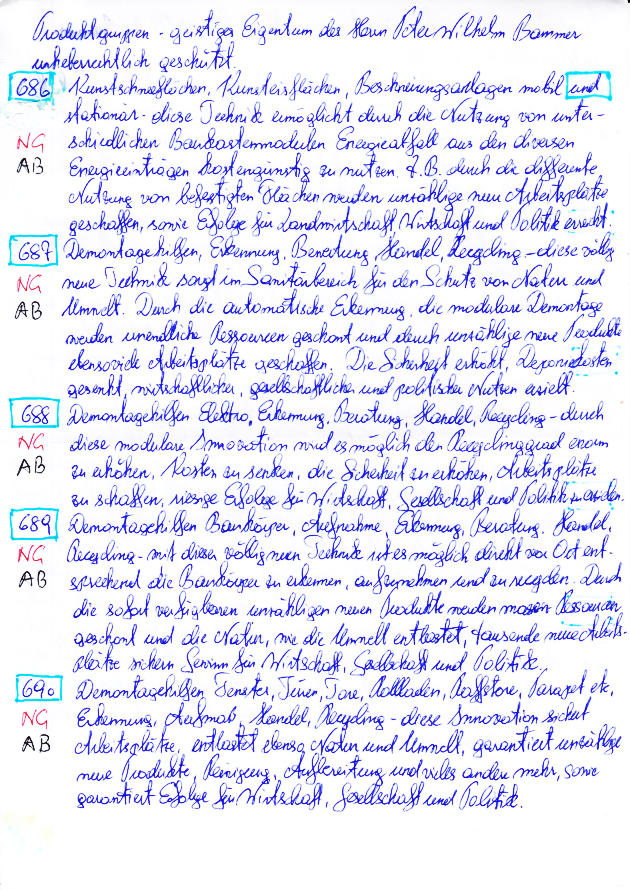 Produktgruppen - geistiges Eigentum des Herrn Peter Wilhelm Bammer
urheberrechtlich geschützt.
686 Kunstschneeflächen, Kunsteisflächen, Beschneiungsanlagen mobil und
stationär - diese Technik ermöglicht durch die Nutzung von unter-
NG schiedlichen Baukastenmodulen Energieabfall aus den diversen
AB Energieeinträgen kostengünstig zu nutzen. Z.B. durch die differente
Nutzung von befestigten Flächen werden unzählige neue Arbeitsplätze
geschaffen, sowie Erfolge für Landwirtschaft Wirtschaft und Politik erreicht.
687 Demontagehilfen, Erkennung, Benetzung, Handel, Recycling - diese völlig
NG neue Technik sorgt im Sanitärbereich für den Schutz von Natur und
AB Umwelt. Durch die automatische Erkennung, die modulare Demontage
werden unendliche Ressourcen geschont und durch unzählige neue Produkte
ebensoviele Arbeitsplätze geschaffen. Die Sicherheit erhöht, Deponiekosten
gesenkt, wirtschaftlicher, gesellschaftlicher und politischer Nutzen erzielt.
688 Demontagehilfen Elektro, Erkennung, Beratung, Handel, Recycling - durch
NG diese modulare Innovation wird es möglich den Recyclinggrad enorm
AB zu erhöhen, Kosten zu senken, die Sicherheit zu erhöhen, Arbeitsplätze
zu schaffen, riesige Erfolge für Wirtschaft, Gesellschaft und Politik zu erzielen.
689 Demontagehilfen Baukörper, Aufnahme, Erkennung, Beratung, Handel,
NG Recycling - mit dieser völlig neuen Technik ist es möglich direkt vor Ort ent-
AB sprechend die Baukörper zu erkennen, aufzunehmen und zu recyclen. Durch
die sofort verfügbaren unzähligen neuen Produkte werden massiv Ressourcen
geschont und die Natur, wie die Umwelt entlastet, tausende neue Arbeits-
plätze sichern Gewinn für Wirtschaft, Gesellschaft und Politik.
690 Demontagehilfen Fenster, Türen, Tore, Rollladen, Raffstore, Parapet etc.
NG Erkennung, Aufmaß, Handel, Recycling - diese Innovation sichert
AB Arbeitsplätze, entlastet ebenso Natur und Umwelt, garantiert unzählige
neue Produkte, Reinigung, Aufbereitung und vieles andere mehr, sowie
garantiert Erfolge für Wirtschaft, Gesellschaft und Politik.